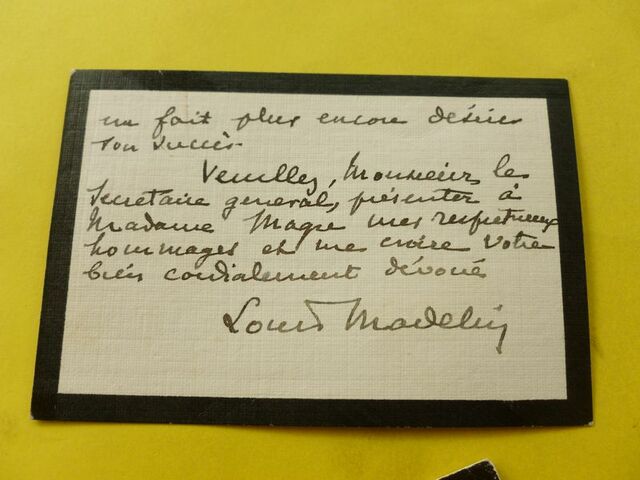 me fait plus encore désirer
son succès
Veuillez, Monsieur le
Secretaire general, présenter à
Madame Magre mes respectueux
hommages et me croire votre
bien cordialement dévoué
Louis Madelin